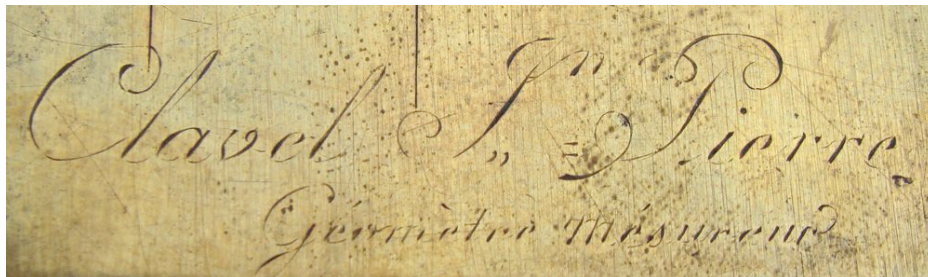 Clavel Jn Pierre
Géomètre Mésureur